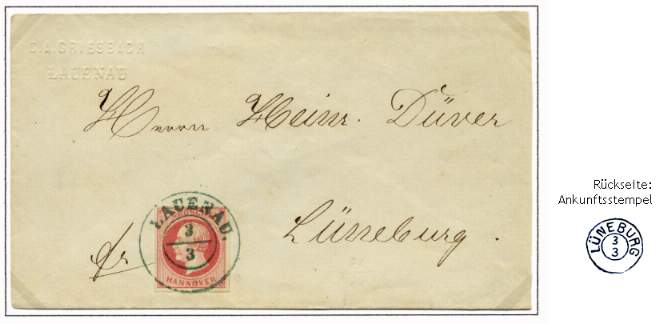 C.A. GRIESBACH
LAUENAU
Herrn Heinr. Düver
Lüneburg.
fr
LAUENAU.
3
3
HANNOVER
Rückseite:
Ankunftsstempel
LÜNEBURG
3
3